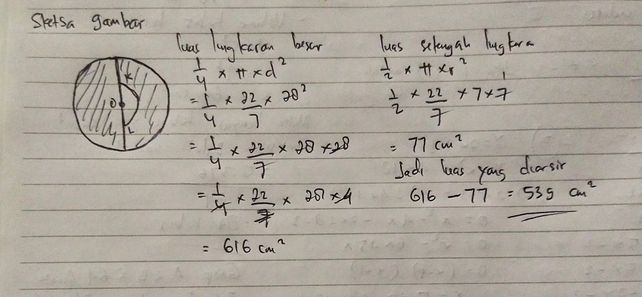 Sketsa gambar
K
O
L
luas lingkaran besar
1/4 × π × d²
= 1/4 × 22/7 × 28²
= 1/4 × 22/7 × 28 × 28
= 1/4 × 22/7 × 28 × 4
= 616 cm²
luas setengah lingkara
1/2 × π × r²
1/2 × 22/7 × 7 × 7 1
= 77 cm²
Jadi luas yang diarsir
616 − 77 = 539 cm²